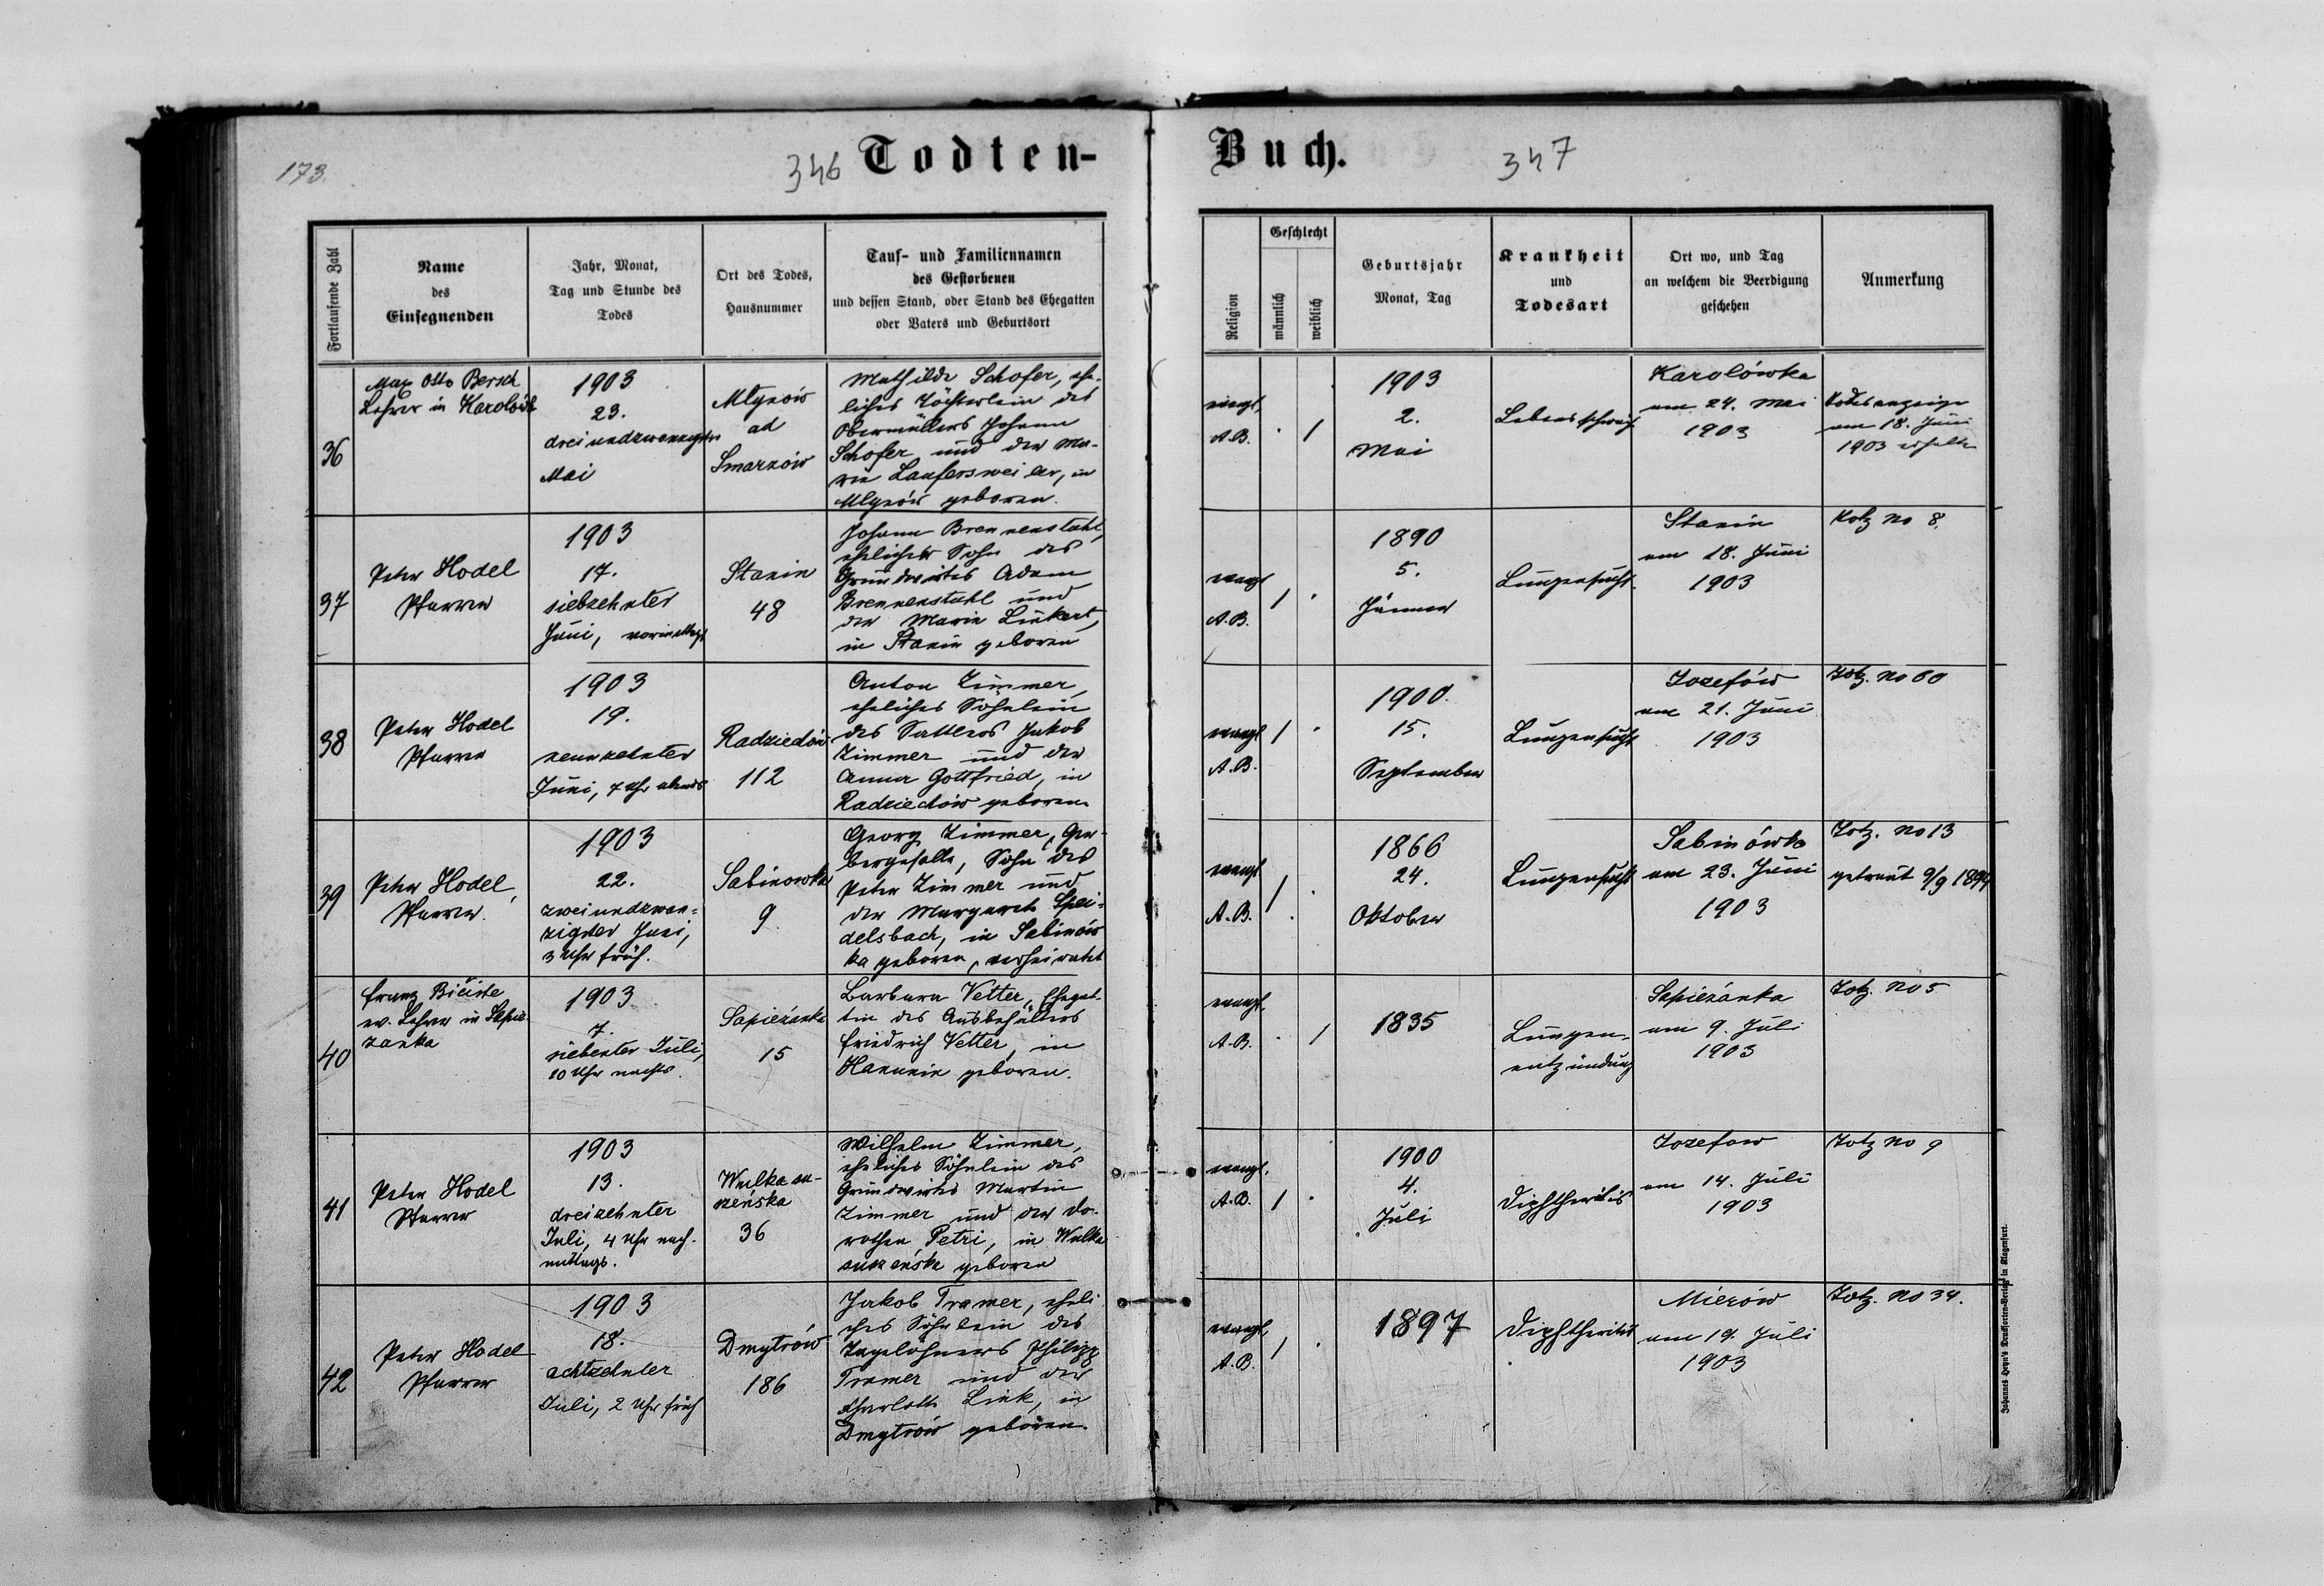 173.
346 Todten-
Buch. 347
Fortlaufende Zahl
Name
des
Einsegnenden
Jahr, Monat,
Tag und Stunde des
Todes
Ort des Todes,
Hausnummer
Tauf- und Familiennamen
des Gestorbenen
und dessen Stand, oder Stand des Ehegatten
oder Vaters und Geburtsort
Religion
Geschlecht
männlich
weiblich
Geburtsjahr
Monat, Tag
Krankheit
und
Todesart
Ort wo, und Tag
an welchem die Beerdigung
geschehen
Anmerkung
36
Max Otto Bersch
Lehrer in
1903
23.
dreiundzwanzigster
Mai
Mlynów
ad
Smarzów
Mathilde Schofer, ehe-
liches Töchterlein des
Obermüllers Johann
Schofer und der Ma-
rie Laufersweiler, in
Mlynów geboren.
evngl.
A.B.
. /
1903
2.
Mai
Karolówka
am 24. Mai
1903
Todesanzeige
am 18. Juni
1903 erhalten
37
Peter Hodel
Pfarrer
1903
17.
siebzehnter
Juni,
Stanin
48
Johann Brennenstuhl,
ehelicher Sohn des
Grundwirtes Adam
Brennenstuhl und
der Marie Linkert,
in Stanin geboren
evngl
A.B.
/ .
1890
5.
Jänner
Lungensucht.
Stanin
am 18. Juni
1903
Totz no 8.
38
Peter Hodel
Pfarrer
1903
19.
neunzehnter
Juni, 7 Uhr abends
Radziechów
112
Anton Zimmer,
eheliches Söhnlein
des Sattlers Jakob
Zimmer und der
Anna Gottfried, in
Radziechów geboren
evngl
A.B.
/ .
1900.
15.
September
Lungensucht
Jozefów
am 21. Juni
1903
Totz. no 60
39
Peter Hodel,
Pfarrer.
1903
22.
zweiundzwan-
zigster Juni,
3 Uhr früh.
Sabinowka
9
Georg Zimmer, Ger-
bergeselle, Sohn des
Peter Zimmer und
der Margareth Spei-
delsbach, in Sabinów
ka geboren, verheiratet
evngl
A.B.
/ .
1866
24.
Oktober
Lungensucht
Sabinówka
am 23. Juni
1903
Totz. no 13
getraut 9/9 1894
40
Franz
ev. Lehrer in Sapie-
zanka
1903
7.
siebenter Juli,
10 Uhr nachts.
Sapieżanka
15
Barbara Vetter, Ehegat-
tin des Ausbehälters
Friedrich Vetter, in
Hanunin geboren.
evngl.
A.B.
. /
1835
Lungen-
entzündung
Sapieżanka
am 9. Juli
1903
Totz. no 5
41
Peter Hodel
Pfarrer
1903
13.
dreizehnter
Juli, 4 Uhr nach-
mittags.
Wulka su-
szeńska
36
Wilhelm Zimmer,
eheliches Söhnlein des
Grundwirtes Martin
Zimmer und der Do-
rothea Petri, in Wulka
suszeńska geboren
evngl.
A.B.
/ .
1900
4.
Juli
Diphtheritis
Jozefow
am 14. Juli
1903
Totz no 9
42
Peter Hodel
Pfarrer
1903
18.
achtzehnter
Juli, 2 Uhr früh
Dmytrów
186
Jakob Tramer, eheli
ches Söhnlein des
Tagelöhners Philipp
Tramer und der
Charlotte Link, in
Dmytrów geboren.
evngl.
A.B.
/ .
1897
Diphtheritis
Mierów
am 19. Juli
1903
Totz. no 34.